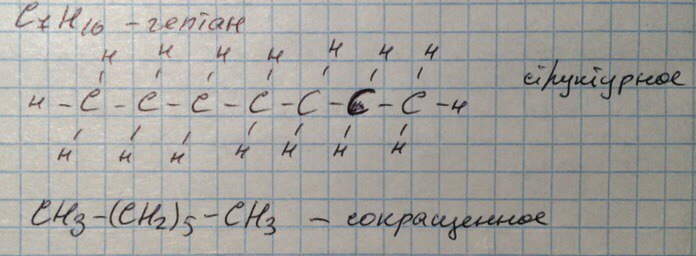 C7H16 - гептан
H H H H H H H
H - C - C - C - C - C - C - C - H структурное
H H H H H H H
CH3-(CH2)5-CH3 - сокращенное